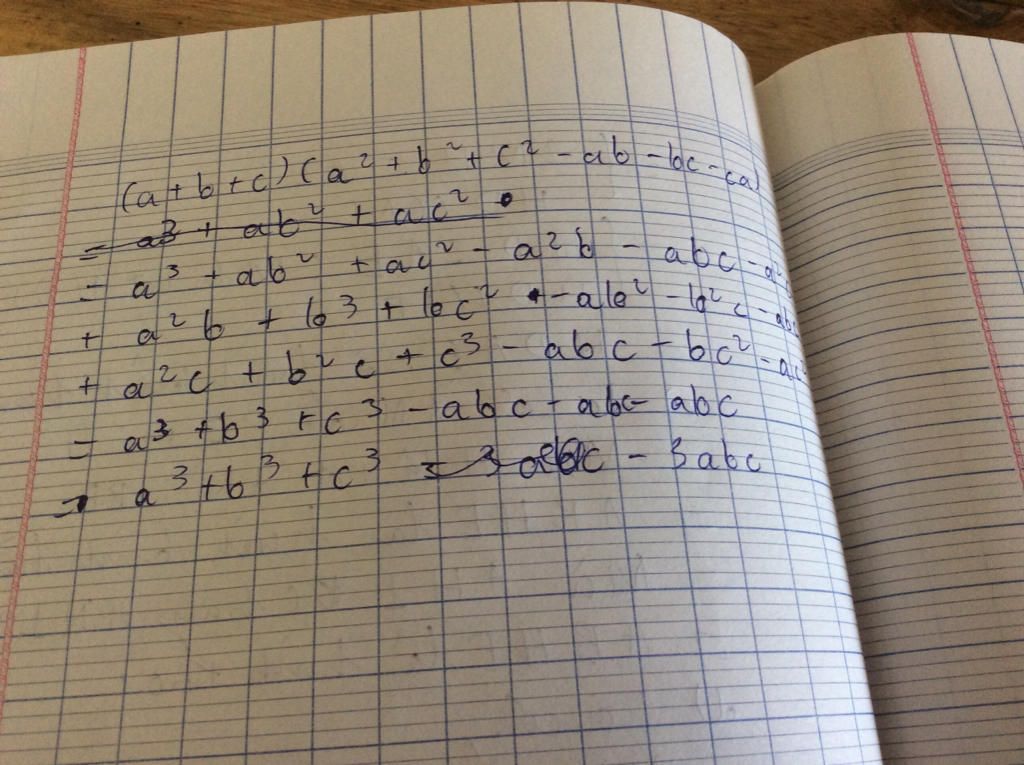 (a+b+c)(a²+b²+c²-ab-bc-ca)
= a³ + ab² + ac²
= a³ + ab² + ac² - a²b - abc - a²
+ a²b + b³ + bc² - ab² - b²c - abc
+ a²c + b²c + c³ - abc - bc² - ac²
= a³ + b³ + c³ - abc - abc - abc
= a³ + b³ + c³ - 3abc